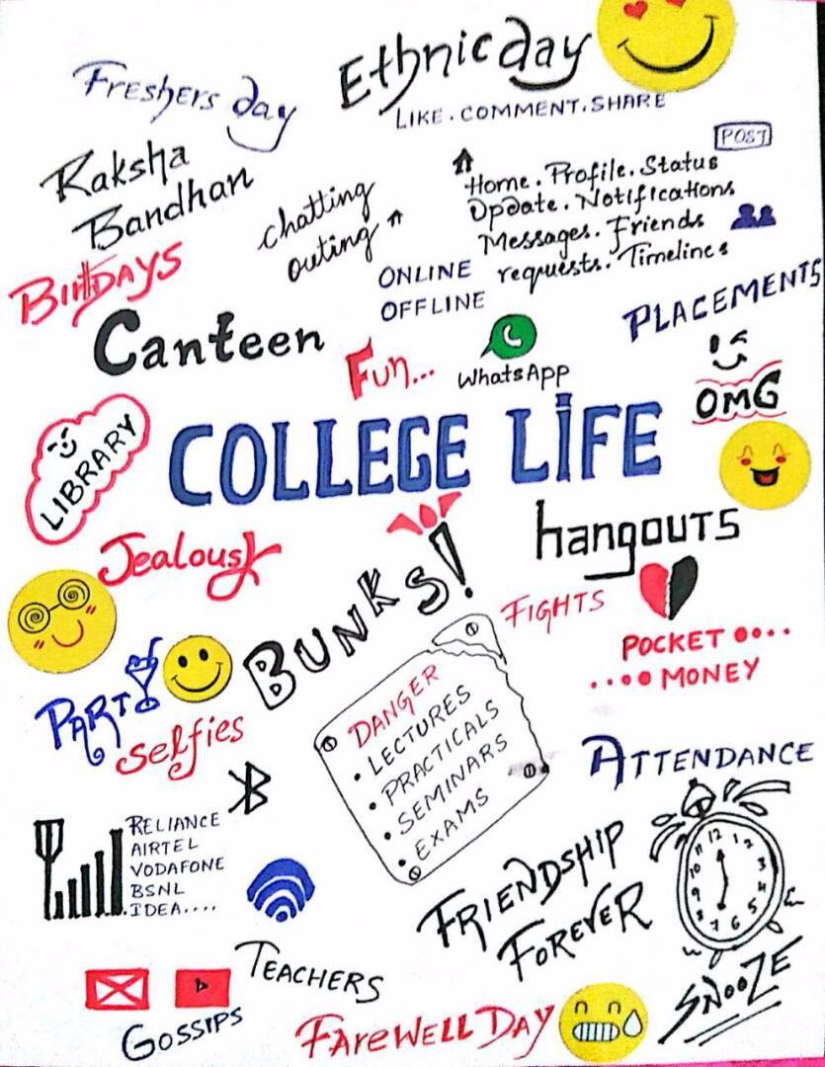 Ethnic day
Freshers day
LIKE.COMMENT.SHARE
POST
Raksha
Bandhan
chatting
outing
Home. Profile. Status
Update. Notifications
Messages. Friends
requests. Timelines
BirthDAYS
ONLINE
OFFLINE
PLACEMENTS
Canteen
Fun...
WhatsApp
OMG
LIBRARY
COLLEGE LiFE
Jealousy
BUNKS!
hangouts
FIGHTS
POCKET
MONEY
PARTY
selfies
DANGER
• LECTURES
• PRACTICALS
• SEMINARS
• EXAMS
ATTENDANCE
RELIANCE
AIRTEL
VODAFONE
BSNL
IDEA....
12
1
2
3
4
5
6
7
8
9
10
11
FRIENDSHIP
FOREVER
SNOOZE
TEACHERS
GOSSIPS
FAreWELL DAY